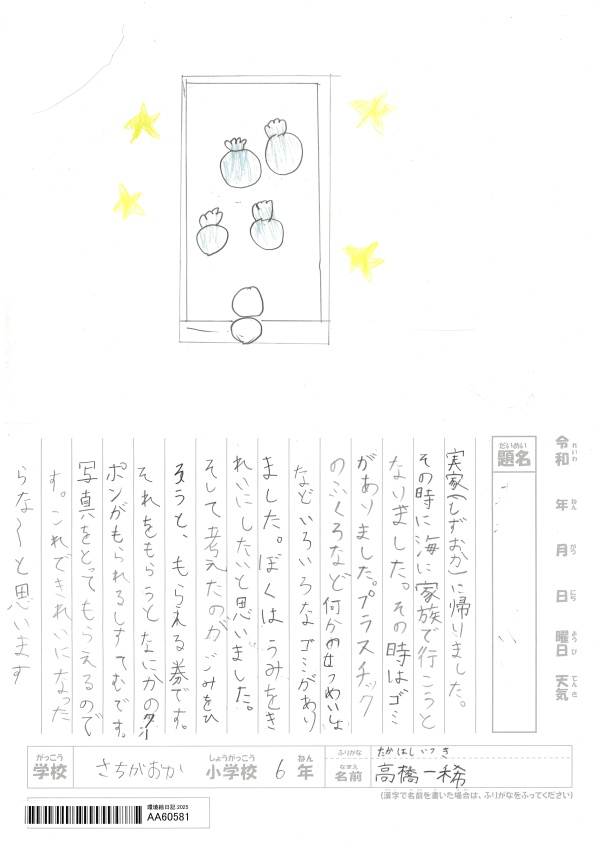 令和 年 月 日 曜日 天気
れいわ ねん がつ にち ようび てんき
だいめい
題名
実家(しずおか)に帰りました。
その時に海に家族で行こうと
なりました。その時はゴミ
がありました。プラスチック
のふくろなど何分の
などいろいろなゴミがあり
ました。ぼくはうみをき
れいにしたいと思いました。
そして考えたのがごみをひ
ろうと、もらえる券です。
それをもらうとなにかのクー
ポンがもられるしすてむです。
写真をとってもらえるので
す。これできれいになった
らな〜と思います
がっこう
学校
さちがおか
しょうがっこう
小学校
6
ねん
年
ふりがな
たかはしいつき
なまえ
名前
高橋一稀
(漢字で名前を書いた場合は、ふりがなをふってください)
環境絵日記 2025
AA60581